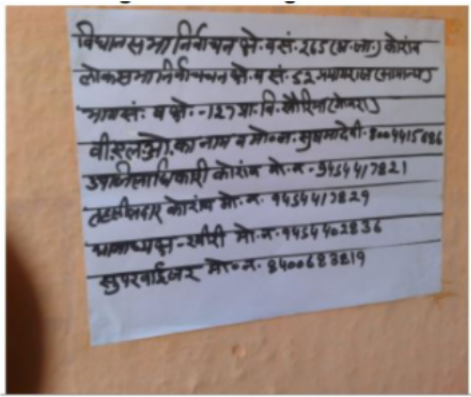 विधानसभा निर्वाचन क्षे.व सं.265 (अ.जा.) कोरांव
लोकसभा निर्वाचन क्षे.व सं.52 (सामान्य)
भाग सं. व क्षे.-127 प्रा.वि.
बी.एल.ओ. का नाम व मो०न. सुषमा देवी-
उपजिलाधिकारी कोरांव मो.न.-9454417821
तहसीलदार कोरांव मो.न. 9454417829
थानाध्यक्ष-खीरी मो.न.9454402836
सुपरवाईजर मो०न.8400683819